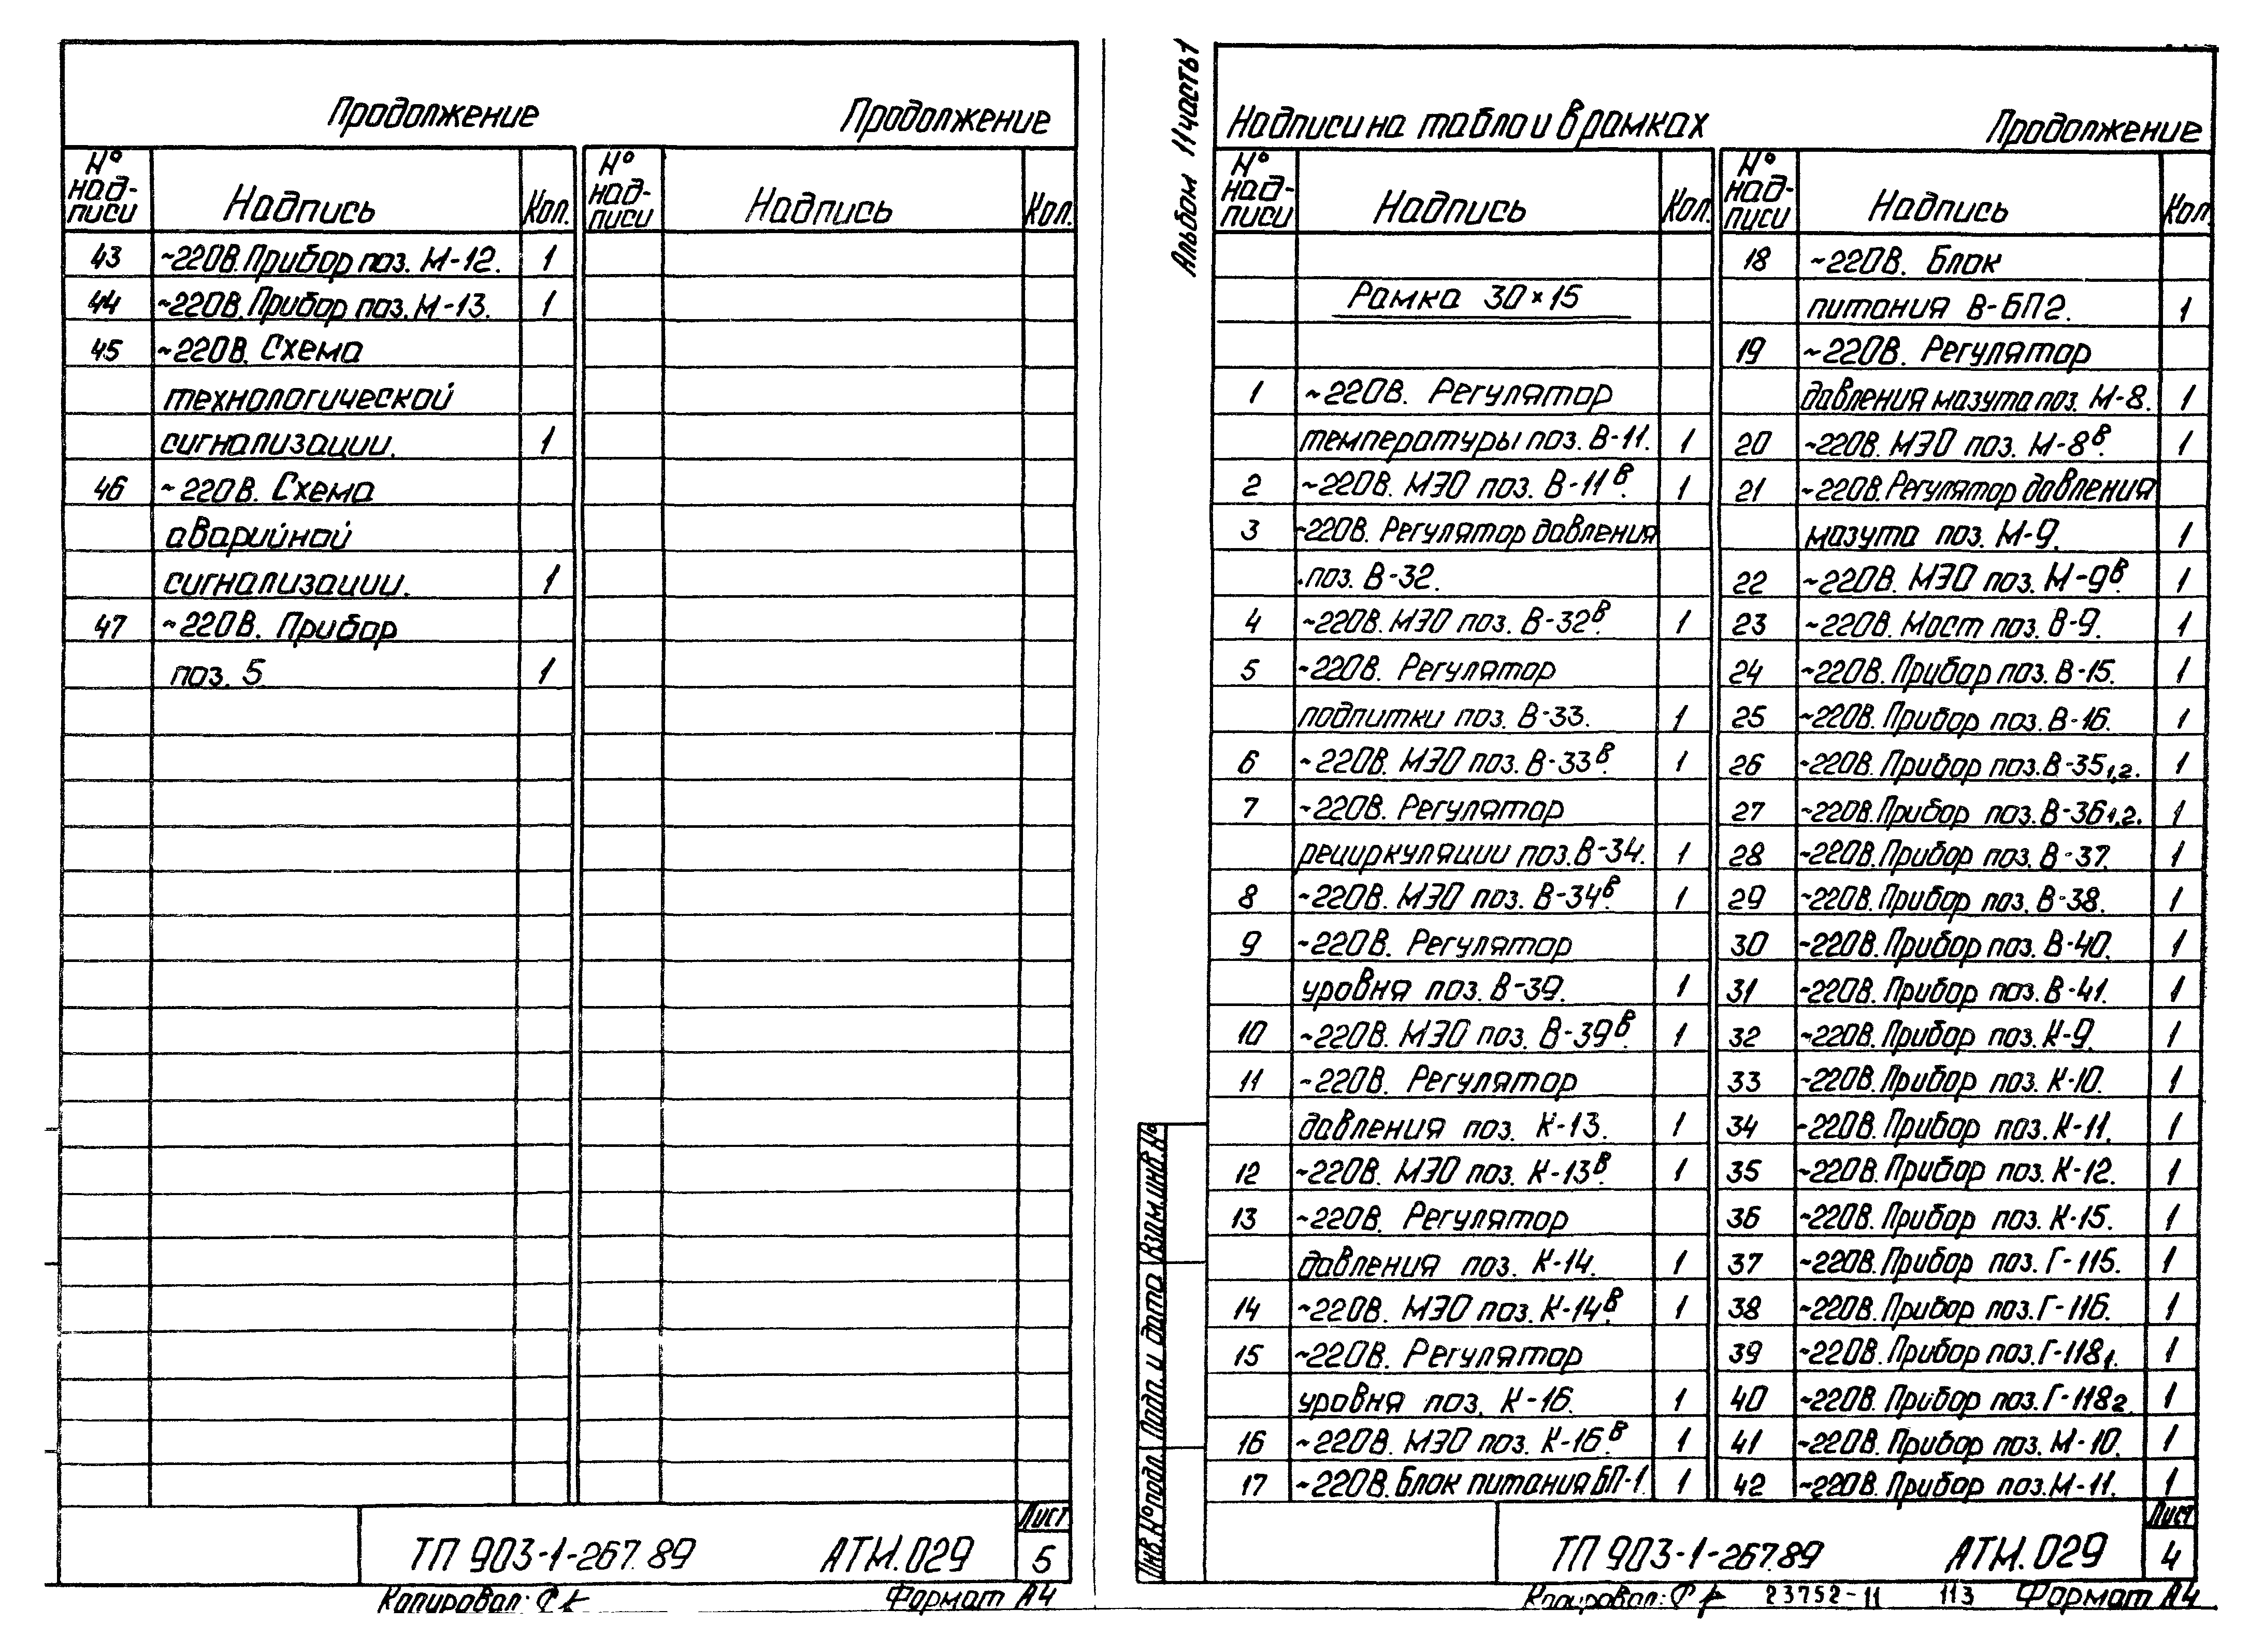 Продолжение Продолжение
№ надписи Надпись Кол. № надписи Надпись Кол.
43 ~220В. Прибор поз. М-12. 1
44 ~220В. Прибор поз. М-13. 1
45 ~220В. Схема
технологической
сигнализации. 1
46 ~220В. Схема
аварийной
сигнализации. 1
47 ~220В. Прибор
поз. 5 1
ТП 903-1-267.89 АТМ.029 Лист 5
Копировал: Формат А4
Альбом 11 часть 1
Надписи на табло и в рамках Продолжение
№ надписи Надпись Кол.
Рамка 30×15
1 ~220В. Регулятор
температуры поз. В-11. 1
2 ~220В. МЭО поз. В-11в. 1
3 ~220В. Регулятор давления
поз. В-32.
4 ~220В. МЭО поз. В-32в. 1
5 ~220В. Регулятор
подпитки поз. В-33. 1
6 ~220В. МЭО поз. В-33в. 1
7 ~220В. Регулятор
рециркуляции поз. В-34. 1
8 ~220В. МЭО поз. В-34в. 1
9 ~220В. Регулятор
уровня поз. В-39. 1
10 ~220В. МЭО поз. В-39в. 1
11 ~220В. Регулятор
давления поз. К-13. 1
12 ~220В. МЭО поз. К-13в. 1
13 ~220В. Регулятор
давления поз. К-14. 1
14 ~220В. МЭО поз. К-14в. 1
15 ~220В. Регулятор
уровня поз. К-16. 1
16 ~220В. МЭО поз. К-16.в 1
17 ~220В. Блок питания БП-1. 1
№ надписи Надпись Кол.
18 ~220В. Блок
питания В-БП2. 1
19 ~220В. Регулятор
давления мазута поз. М-8. 1
20 ~220В. МЭО поз. М-8в. 1
21 ~220В. Регулятор давления
мазута поз. М-9. 1
22 ~220В. МЭО поз. М-9в. 1
23 ~220В. Мост поз. В-9. 1
24 ~220В. Прибор поз. В-15. 1
25 ~220В. Прибор поз. В-16. 1
26 ~220В. Прибор поз. В-35₁,₂. 1
27 ~220В. Прибор поз. В-36₁,₂. 1
28 ~220В. Прибор поз. В-37. 1
29 ~220В. Прибор поз. В-38. 1
30 ~220В. Прибор поз. В-40. 1
31 ~220В. Прибор поз. В-41. 1
32 ~220В. Прибор поз. К-9. 1
33 ~220В. Прибор поз. К-10. 1
34 ~220В. Прибор поз. К-11. 1
35 ~220В. Прибор поз. К-12. 1
36 ~220В. Прибор поз. К-15. 1
37 ~220В. Прибор поз. Г-115. 1
38 ~220В. Прибор поз. Г-116. 1
39 ~220В. Прибор поз. Г-118₁. 1
40 ~220В. Прибор поз. Г-118₂. 1
41 ~220В. Прибор поз. М-10. 1
42 ~220В. Прибор поз. М-11. 1
Инв. № подл. Подп. и дата Взам. инв. №
ТП 903-1-267.89 АТМ.029 Лист 4
Копировал: 23752-11 113 Формат А4